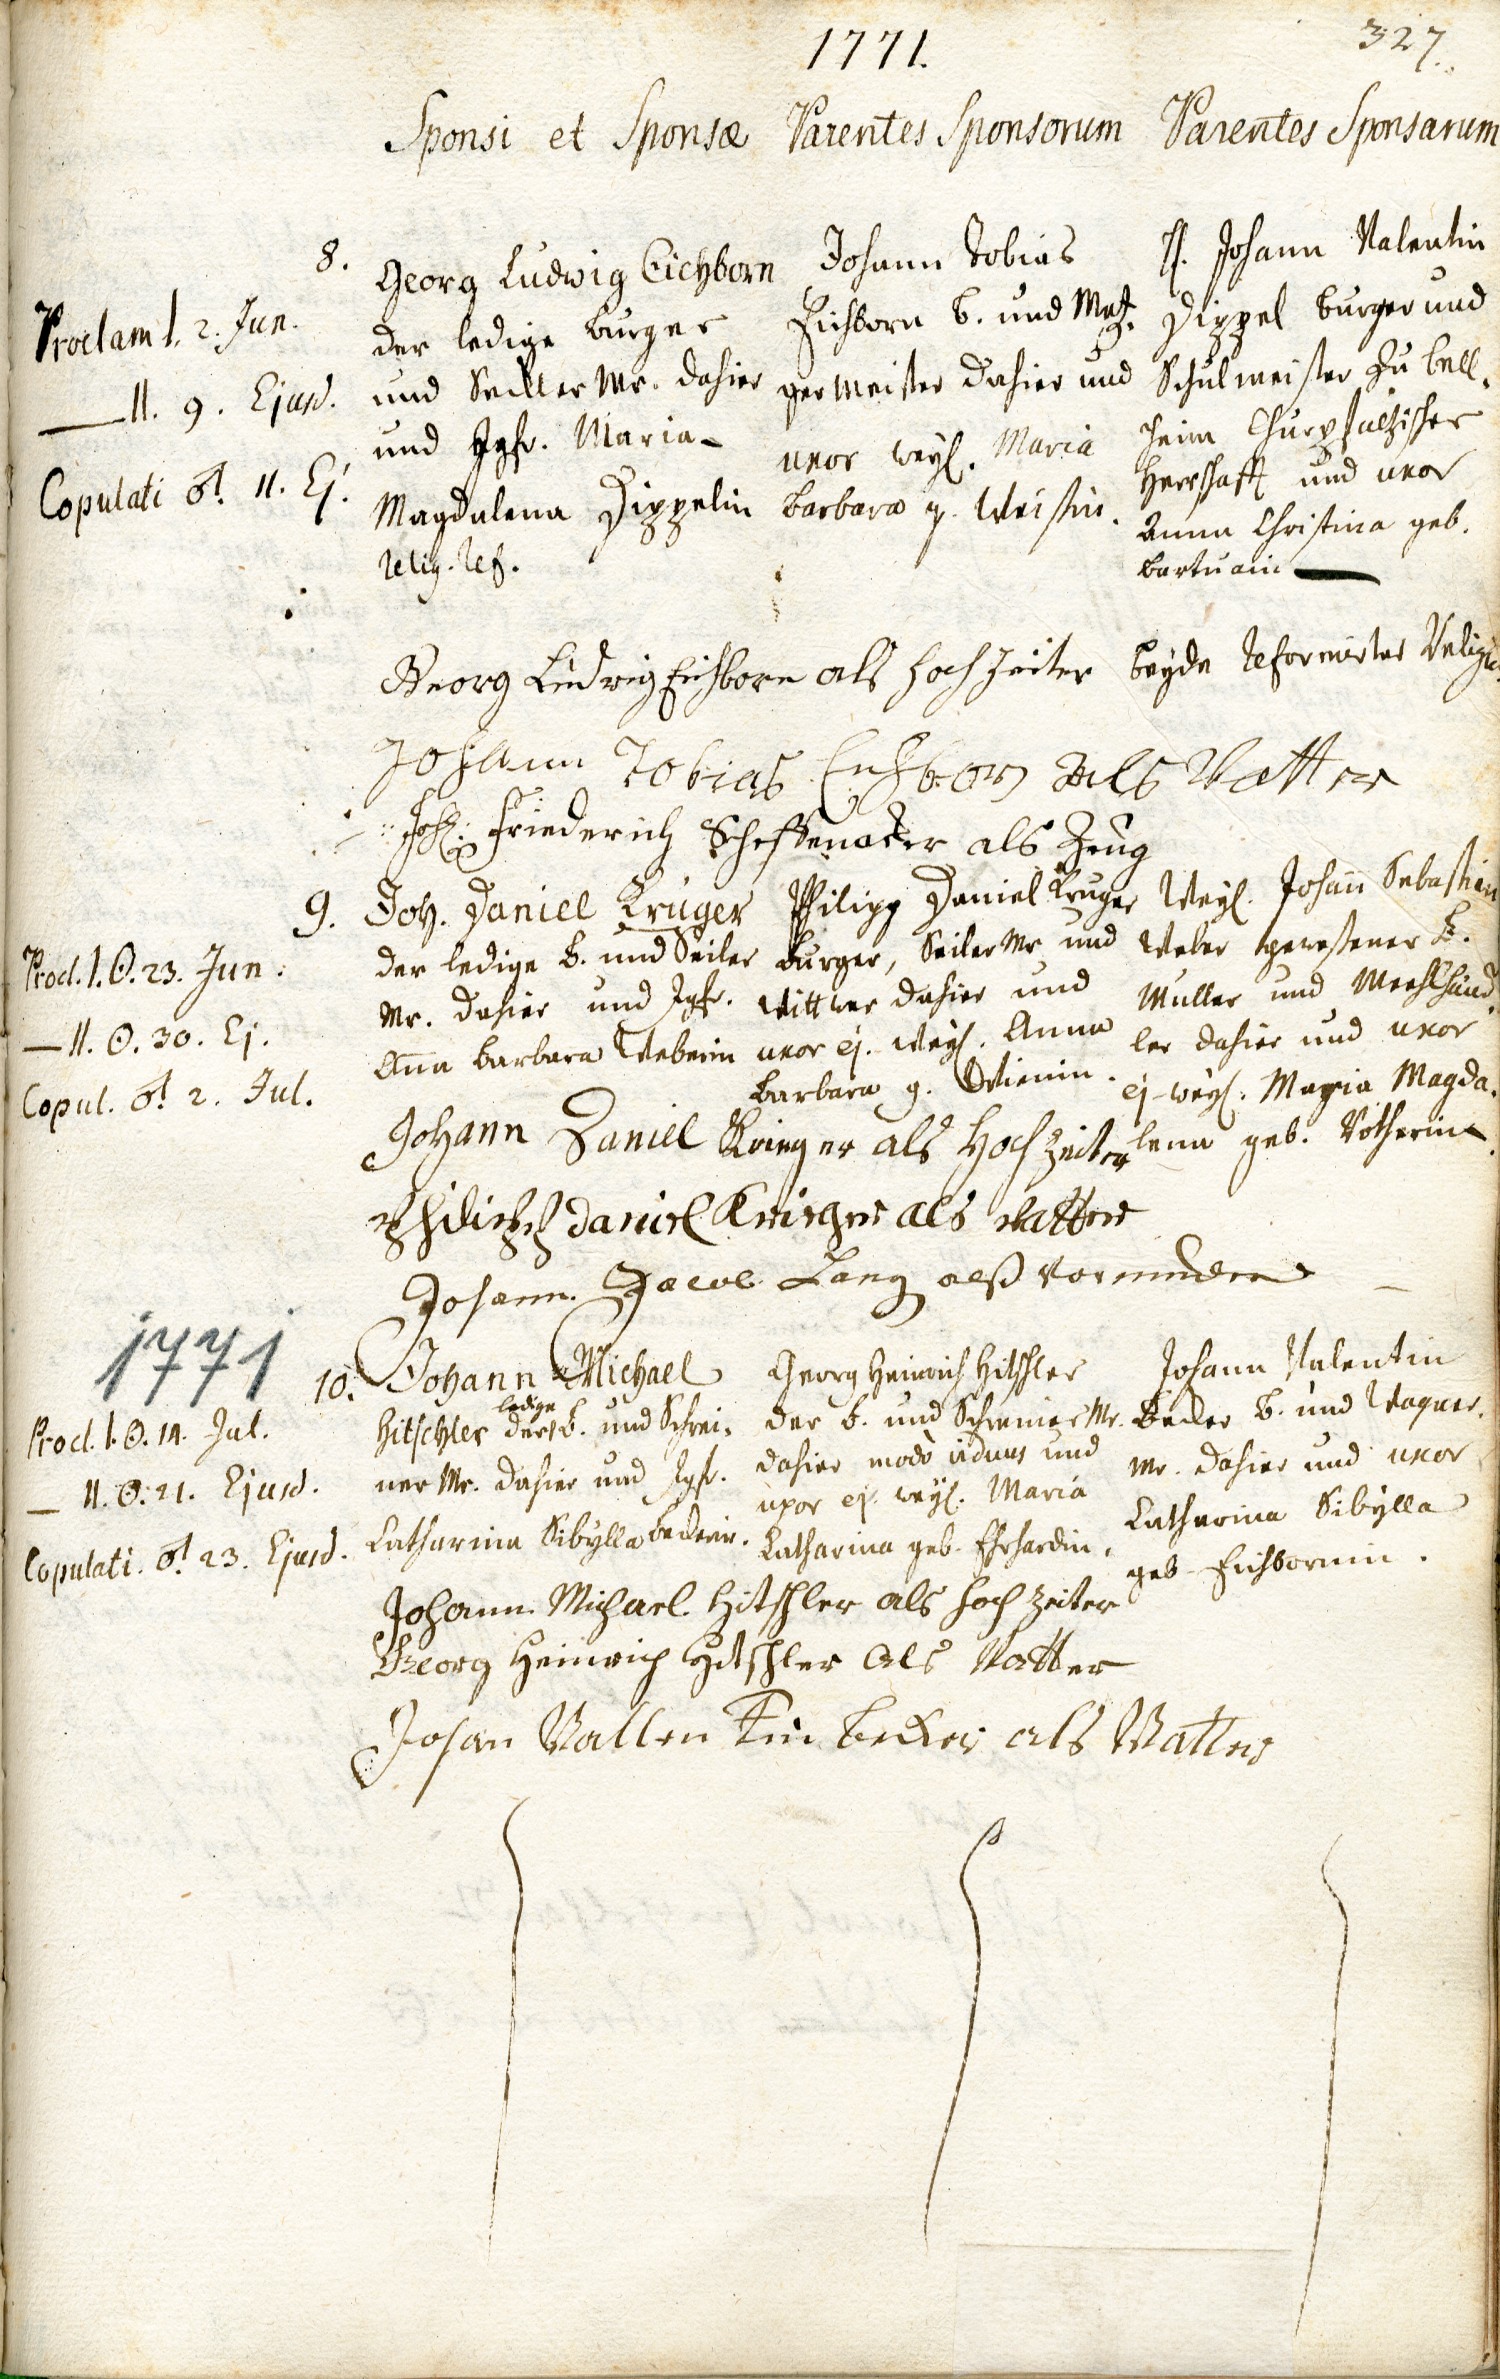 1771.
327.
Sponsi et Sponsæ
Parentes Sponsorum
Parentes Sponsarum
8.
Proclam I. 2. Jun.
— II. 9. Ejusd.
Copulati ♂ 11. Ej.
Georg Ludwig Eichborn
der ledige burger
und Seckler Mr. dahier
und Jgfr. Maria
Magdalena Dippelin
relig. ref.
Johann Tobias
Eichborn b. und Metz-
germeister dahier und
uxor weyl. Maria
Barbara g. Weisin.
H. Johann Valentin
Dippel burger und
Schulmeister zu bell-
heim Churpfaltzischer
Herrschafft und uxor
Anna Christina geb.
bartuain —
beyde reformirter Relig.
Georg Ludwig Eichborn als hochzeiter
Johann Tobias Eichborn als Vatter
Joh: Friederich Scheffenacker als Zeug
9.
Procl. I. ☉. 23. Jun.
— II. ☉. 30. Ej.
Copul. ♂ 2. Jul.
Joh. Daniel Krüger
der ledige b. und Seiler
Mr. dahier und Jgfr.
Ana Barbara Weberin
Philipp Daniel Krüger
burger, Seiler Mr und
Wittwer dahier und
uxor ej. weyl. Anna
Barbara g.
Weyl. Johan Sebastian
Weber geweßener b.
Müller und Meelhänd-
ler dahier und uxor
ej. weyl. Maria Magda-
lena geb. Rotherin
Johann Daniel Krieger als Hochzeiter
Philipp Daniel Krieger als Vatter
Johann Jacob Lang alß Vormunder
1771
10.
Procl. I. ☉. 14. Jul.
— II. ☉. 21. Ejusd.
Copulati. ♂ 23. Ejusd.
Johann Michael
ledige
Hitschler der b. und Schrei-
ner Mr. dahier und Jgfr.
Catharina Sibylla beckerin.
Georg Heinrich Hitschler
der b. und Schreiner Mr.
dahier modo viduus und
uxor ej. weyl. Maria
Catharina geb. Ehrhardin.
Johann Valentin
Becker b. und Wagner-
Mr. dahier und uxor
Catharina Sibylla
geb. Eichbornin.
Johann Michael Hitschler als hochzeiter
Georg Heinrich Hitschler als Vatter
Johan Vallentin becker als Vatter